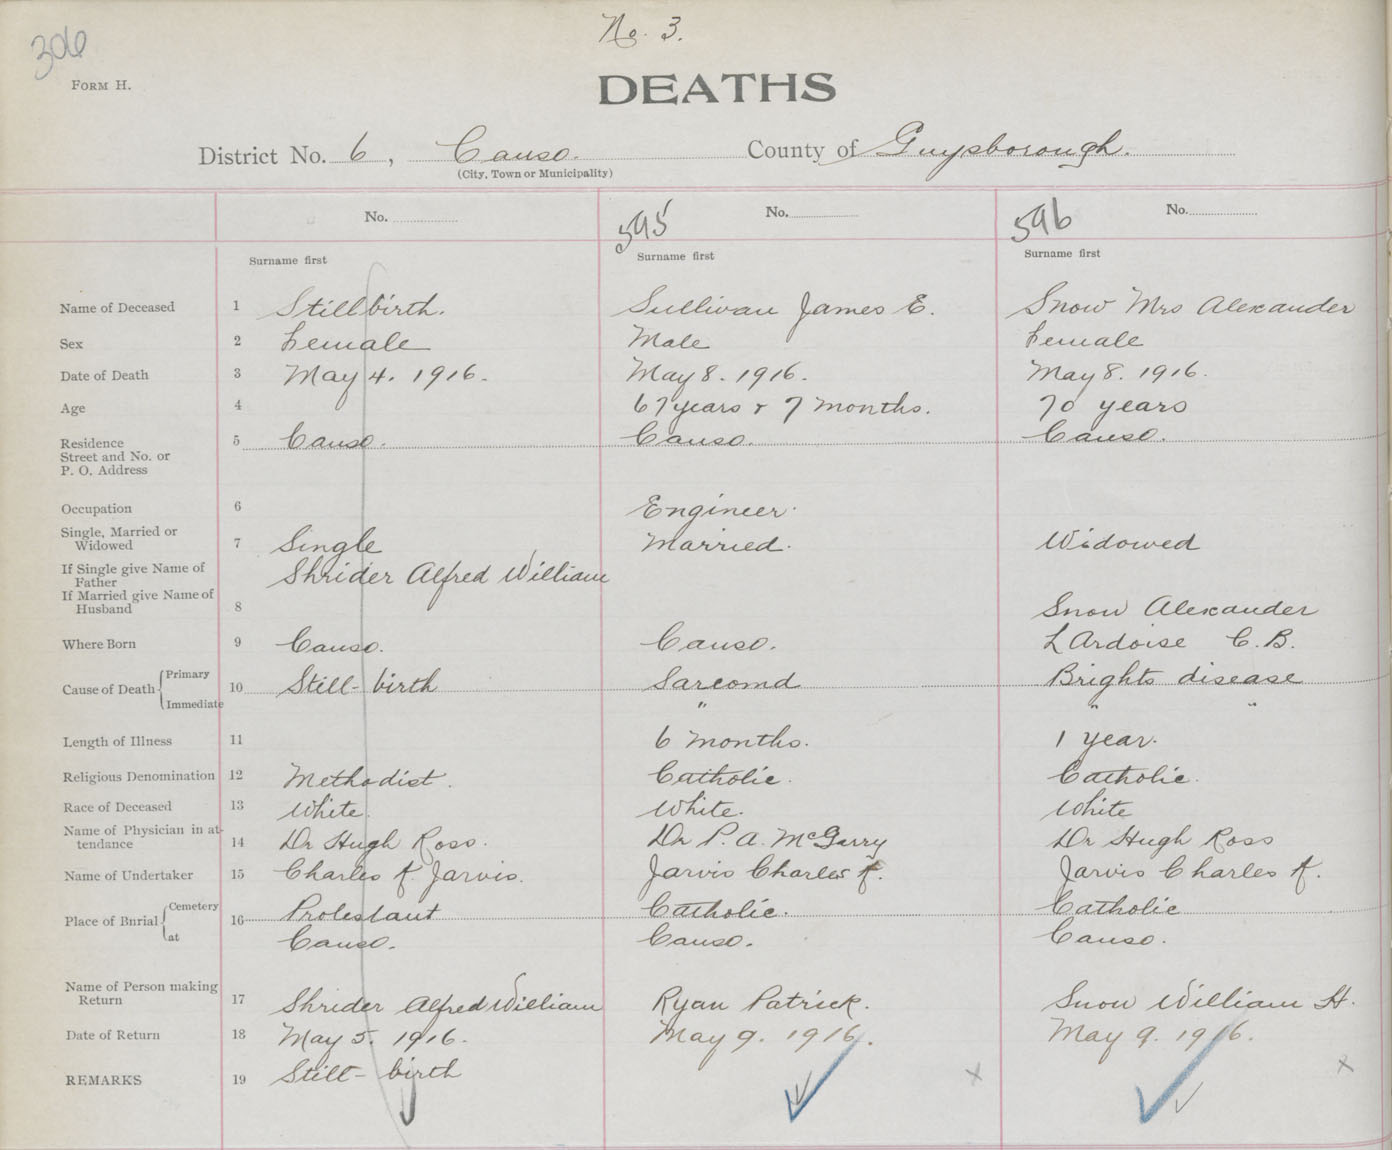 306
No. 3.
FORM H.
DEATHS
District No. 6, Canso. County of Guysborough.
(City, Town or Municipality)
No. No. No.
595 596
Surname first Surname first Surname first
Name of Deceased 1 Stillbirth. Sullivan James E. Snow Mrs Alexander
Sex 2 Female Male Female
Date of Death 3 May 4. 1916. May 8. 1916. May 8. 1916.
Age 4 67 years & 7 months. 70 years
Residence 5 Canso. Canso. Canso.
Street and No. or
P. O. Address
Occupation 6 Engineer.
Single, Married or
Widowed 7 Single Married. Widowed
If Single give Name of
Father Shrider Alfred William
If Married give Name of
Husband 8 Snow Alexander
Where Born 9 Canso. Canso. L Ardoise C. B.
Cause of Death Primary 10 Still-birth Sarcomd Brights disease
Immediate " " "
Length of Illness 11 6 months. 1 year.
Religious Denomination 12 Methodist. Catholic. Catholic.
Race of Deceased 13 White. White. White
Name of Physician in at-
tendance 14 Dr Hugh Ross. Dr P. A. McGarry Dr Hugh Ross
Name of Undertaker 15 Charles A. Jarvis. Jarvis Charles A. Jarvis Charles A.
Place of Burial Cemetery 16 Protestant Catholic. Catholic
at Canso. Canso. Canso.
Name of Person making
Return 17 Shrider Alfred William Ryan Patrick. Snow William H.
Date of Return 18 May 5. 1916. May 9. 1916. May 9. 1916.
REMARKS 19 Still-birth x x